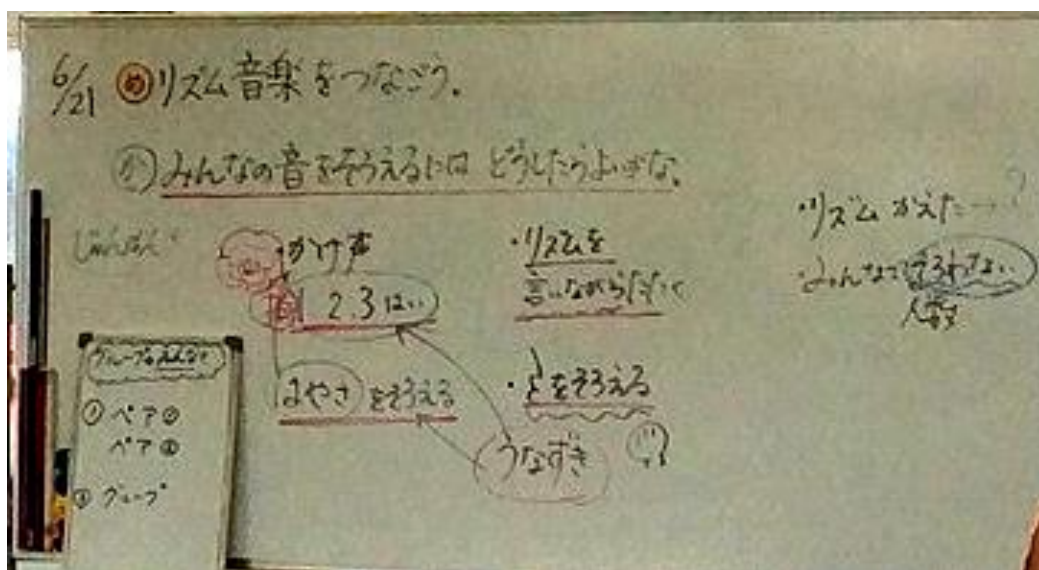 6/21 め リズム音楽をつなごう。
か みんなの音をそろえるには どうしたらよいかな。
・かけ声
1 2.3 はい
はやさをそろえる
・リズムを
言いながらたたく
・とをそろえる
うなずき
・リズム かえた→?
・みんなで そろわない
人数
グループ みんなで
① ペア
ペア
② グループ